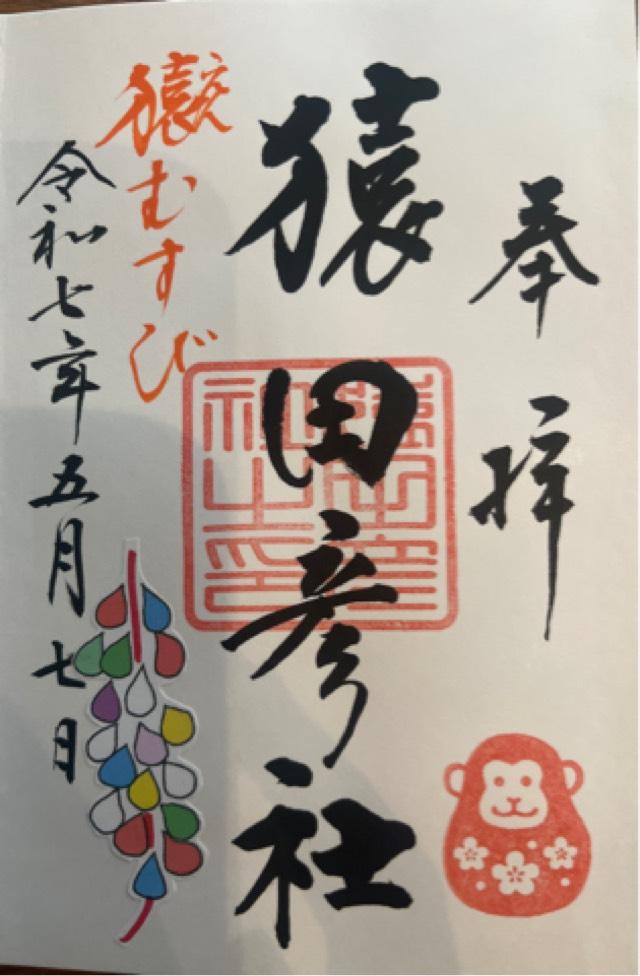 奉拝
猿田彦社
猿田彦社之印
猿むすび
令和七年五月七日